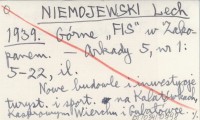 NIEMOJEWSKI Lech
1939. Górne "FIS" w Zako-
panem. — Arkady 5, nr 1:
5-22, il.
Nowe budowle i inwestycje
turyst. i sport. na Kalatówkach,
Kasprowym Wierchu i Gubałówce.